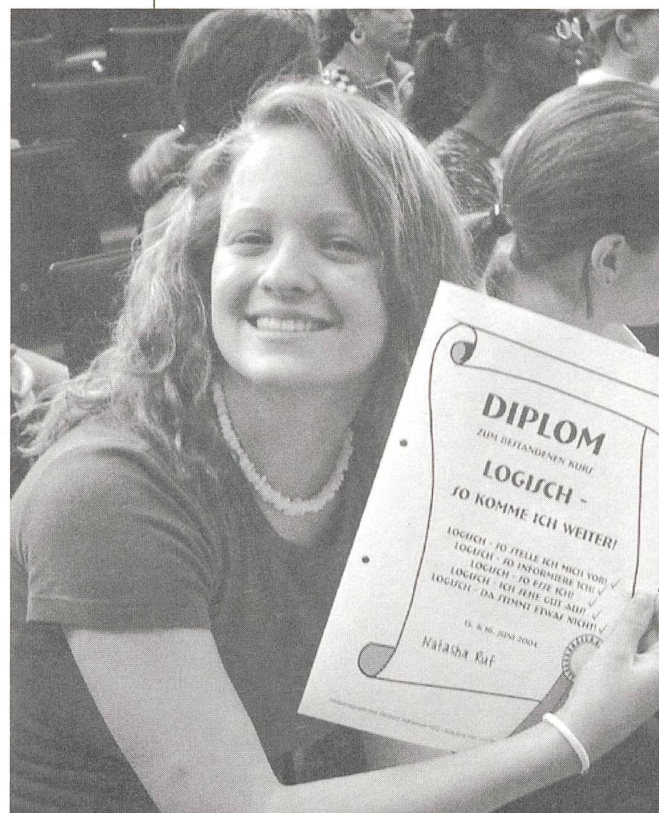 DIPLOM
ZUM BESTANDENEN KURS
LOGISCH -
SO KOMME ICH WEITER!
LOGISCH - SO STELLE ICH MICH VOR! ✓
LOGISCH - SO INFORMIERE ICH! ✓
LOGISCH - SO ESSE ICH! ✓
LOGISCH - ICH SEHE GUT AUS! ✓
LOGISCH - DA STIMMT ETWAS NICHT! ✓
15. & 16. JUNI 2004
Natasha Ruf